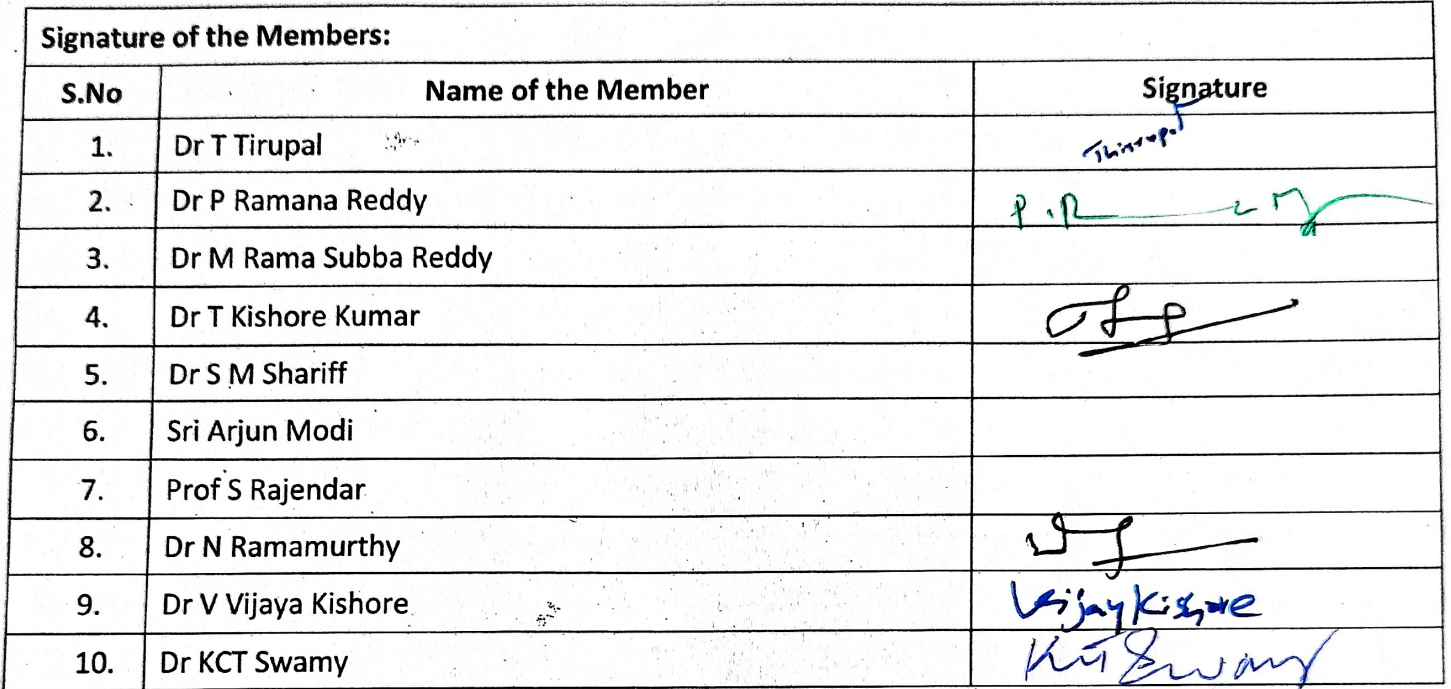 Signature of the Members:
S.No Name of the Member Signature
1. Dr T Tirupal Thirupal
2. Dr P Ramana Reddy P.R
3. Dr M Rama Subba Reddy
4. Dr T Kishore Kumar
5. Dr S M Shariff
6. Sri Arjun Modi
7. Prof S Rajendar
8. Dr N Ramamurthy
9. Dr V Vijaya Kishore Vijay Kishore
10. Dr KCT Swamy KCT Swamy